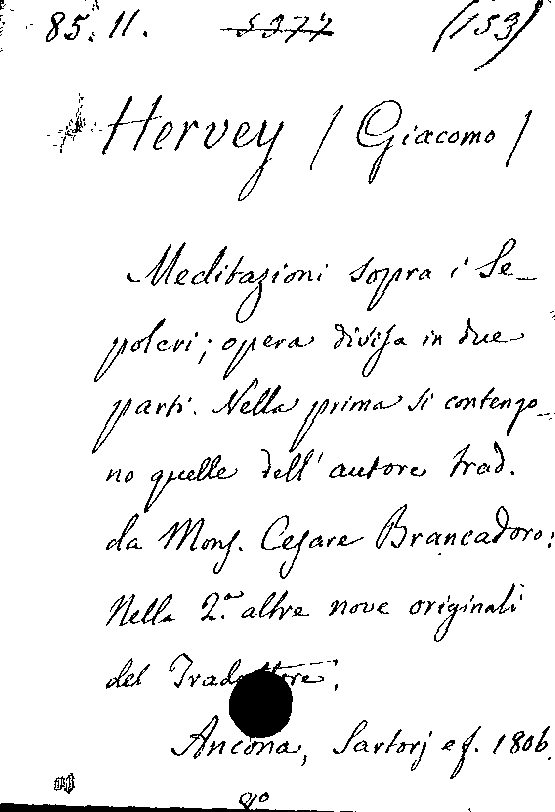 85.11. 5377 (153)
Hervey / Giacomo /
Meditazioni sopra i Se_
polcri; opera divisa in due
parti. Nella prima si contengo_
no quelle dell' autore trad.
da Mons. Cesare Brancadoro:
Nella 2.a altre nove originali
del Traduttore.
Ancona, Sartorj e f. 1806.
8o